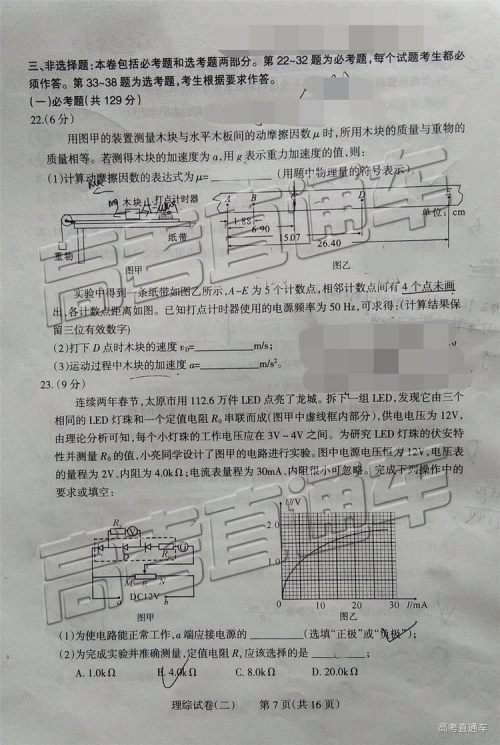 三、非选择题：本卷包括必考题和选考题两部分。第 22~32 题为必考题，每个试题考生都必
须作答。第 33~38 题为选考题，考生根据要求作答。
（一）必考题（共 129 分）
22.（6分）
用图甲的装置测量木块与水平木板间的动摩擦因数 μ 时，所用木块的质量与重物的
质量相等。若测得木块的加速度为 a，用 g 表示重力加速度的值，则：
（1）计算动摩擦因数的表达式为 μ=________（用题中物理量的符号表示）。
木块 打点计时器
纸带
重物
图甲
A B D E
1.88
6.90
15.07
26.40
单位：cm
图乙
实验中得到一条纸带如图乙所示，A~E 为 5 个计数点，相邻计数点间有 4 个点未画
出，各计数点距离如图。已知打点计时器使用的电源频率为 50 Hz，可求得：（计算结果保
留三位有效数字）
（2）打下 D 点时木块的速度 vD=________m/s；
（3）运动过程中木块的加速度 a=________m/s²。
23.（9 分）
连续两年春节，太原市用 112.6 万件 LED 点亮了龙城。拆下一组 LED，发现它由三个
相同的 LED 灯珠和一个定值电阻 R₀ 串联而成（图甲中虚线框内部分），供电电压为 12V，
由理论分析可知，每个小灯珠的工作电压应在 3V~4V 之间。为研究 LED 灯珠的伏安特
性并测量 R₀ 的值，小亮同学设计了图甲的电路进行实验。图中电源电压恒为 12V，电压表
的量程为 2V、内阻为 4.0kΩ；电流表量程为 30mA，内阻很小可忽略。完成下列操作中的
要求或填空：
M R N
a b
DC12V
图甲
U/V
2.0
1.0
0 10 20 30 I/mA
图乙
（1）为使电路能正常工作，a 端应接电源的________（选填“正极”或“负极”）；
（2）为完成实验并准确测量，定值电阻 R₁ 应该选择的是________；
A. 1.0kΩ B. 4.0kΩ C. 8.0kΩ D. 20.0kΩ
理综试卷（二） 第 7 页（共 16 页）
高考直通车
高考直通车
高考直通车